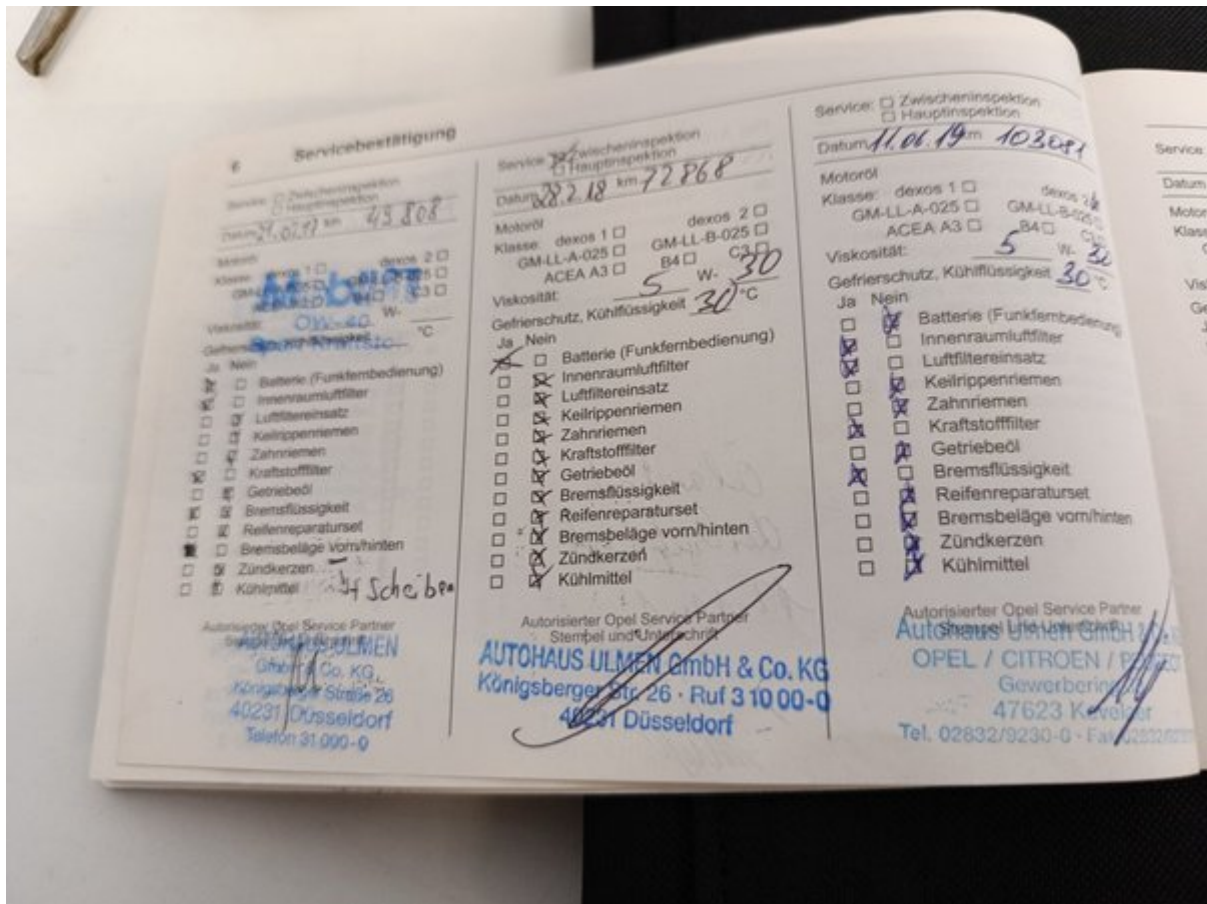 6 Servicebestätigung
Service: Zwischeninspektion
Hauptinspektion
Datum 21.02.17 km 43808
Motoröl
Klasse: dexos 1 dexos 2
C3
Viskosität: W-
OW-40
°C
Ja Nein
Batterie (Funkfernbedienung)
Innenraumluftfilter
Luftfiltereinsatz
Keilrippenriemen
Zahnriemen
Kraftstofffilter
Getriebeöl
Bremsflüssigkeit
Reifenreparaturset
Bremsbeläge vorn/hinten
Zündkerzen
Kühlmittel
+ Scheiben
Autorisierter Opel Service Partner
AUTOHAUS ULMEN
GmbH & Co. KG
Königsberger Straße 26
40231 Düsseldorf
Telefon 31 000-0
Service: Zwischeninspektion
Hauptinspektion
Datum 28.2.18 km 72868
Motoröl
Klasse: dexos 1 dexos 2
GM-LL-A-025 GM-LL-B-025
ACEA A3 B4 C3
Viskosität: 5 W- 30
Gefrierschutz, Kühlflüssigkeit 30 °C
Ja Nein
Batterie (Funkfernbedienung)
Innenraumluftfilter
Luftfiltereinsatz
Keilrippenriemen
Zahnriemen
Kraftstofffilter
Getriebeöl
Bremsflüssigkeit
Reifenreparaturset
Bremsbeläge vorn/hinten
Zündkerzen
Kühlmittel
Autorisierter Opel Service Partner
Stempel und Unterschrift
AUTOHAUS ULMEN GmbH & Co. KG
Königsberger Str. 26 · Ruf 3 10 00-0
40231 Düsseldorf
Service: Zwischeninspektion
Hauptinspektion
Datum 11.06.19 km 103081
Motoröl
Klasse: dexos 1 dexos 2
GM-LL-A-025 GM-LL-B-025
ACEA A3 B4 C3
Viskosität: 5 W- 30
Gefrierschutz, Kühlflüssigkeit 30 °C
Ja Nein
Batterie (Funkfernbedienung)
Innenraumluftfilter
Luftfiltereinsatz
Keilrippenriemen
Zahnriemen
Kraftstofffilter
Getriebeöl
Bremsflüssigkeit
Reifenreparaturset
Bremsbeläge vorn/hinten
Zündkerzen
Kühlmittel
Autorisierter Opel Service Partner
Stempel und Unterschrift
Autohaus Ulmen GmbH &
OPEL / CITROEN /
Gewerbering
47623 Kevelaer
Tel. 02832/9230-0 · Fax
Service:
Datum